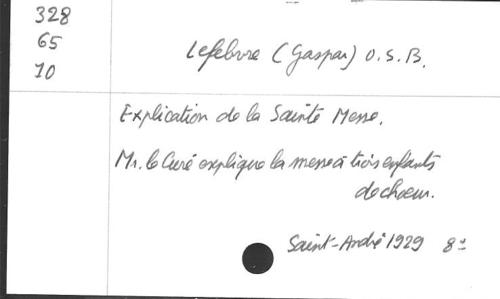 328
65
10
Lefebvre (Gaspar) O.S.B.
Explication de la Sainte Messe.
Mr. le Curé explique la messe à trois enfants
de choeur.
Saint-André 1929 8°